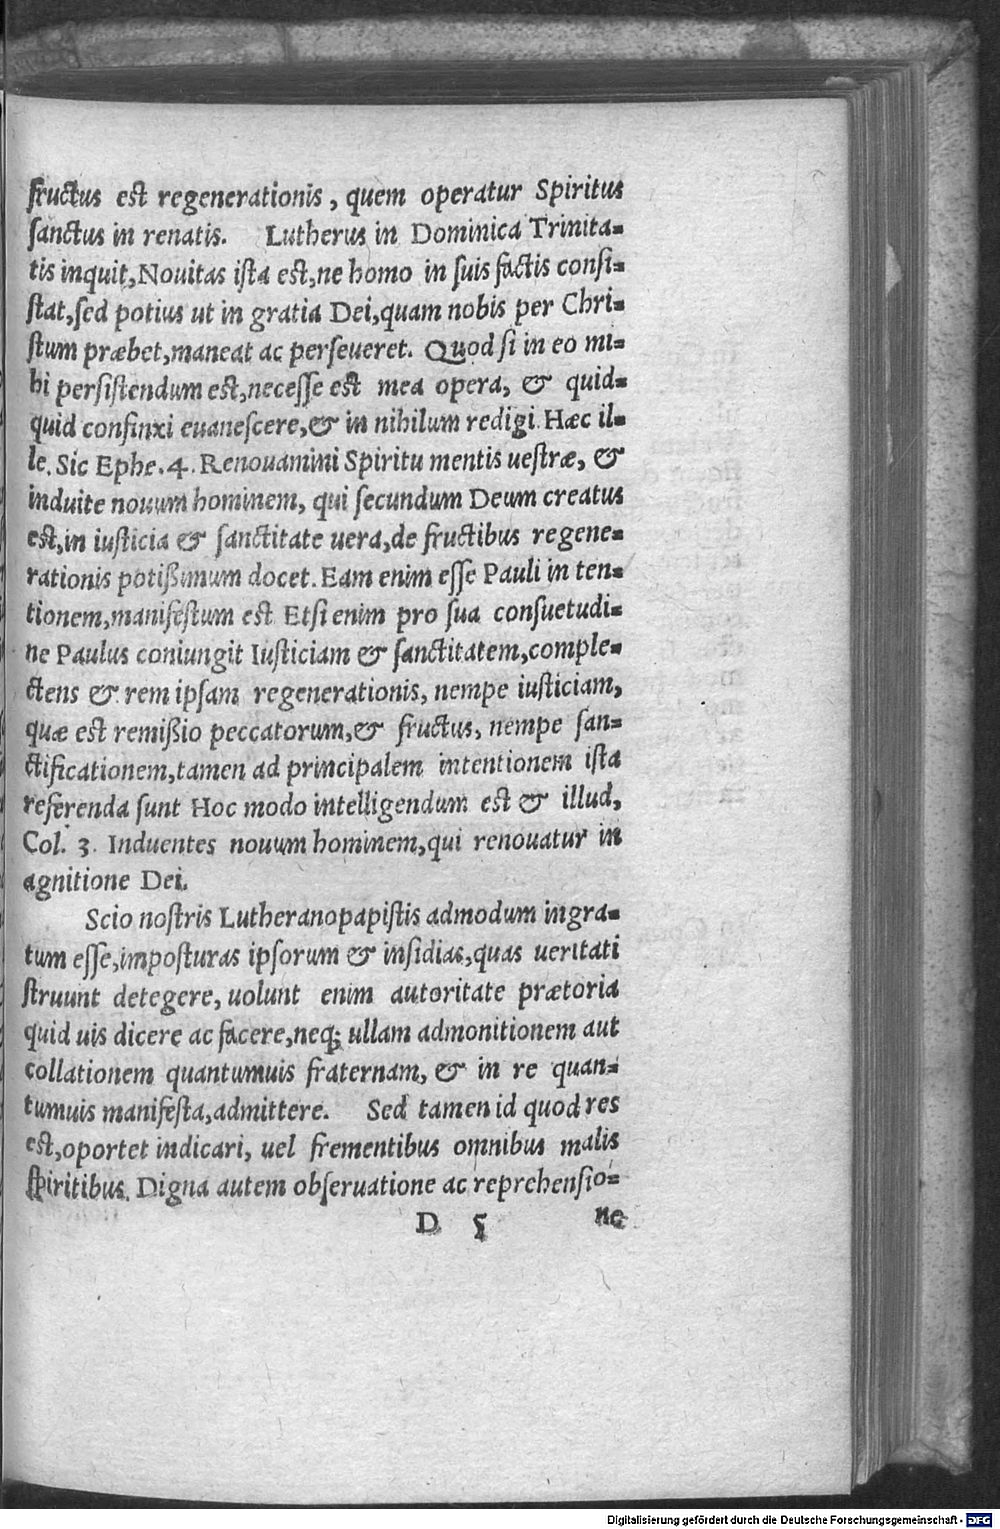 fructus est regenerationis, quem operatur Spiritus
ſanctus in renatis. Lutherus in Dominica Trinita=
tis inquit, Nouitas iſta est, ne homo in ſuis factis conſi=
ſtat, ſed potius ut in gratia Dei, quam nobis per Chri=
ſtum præbet, maneat ac perſeueret. Quod ſi in eo mi=
hi perſiſtendum est, neceſſe est mea opera, & quid=
quid confinxi euaneſcere, & in nihilum redigi. Hæc il=
le. Sic Ephe. 4. Renouamini Spiritu mentis ueſtræ, &
induite nouum hominem, qui ſecundum Deum creatus
est, in iuſticia & ſanctitate uera, de fructibus regene=
rationis potißimum docet. Eam enim eſſe Pauli in ten=
tionem, manifeſtum est Etſi enim pro ſua conſuetudi=
ne Paulus coniungit Iuſticiam & ſanctitatem, comple=
ctens & rem ipſam regenerationis, nempe iuſticiam,
quæ est remißio peccatorum, & fructus, nempe ſan=
ctificationem, tamen ad principalem intentionem iſta
referenda ſunt Hoc modo intelligendum est & illud,
Col. 3. Induentes nouum hominem, qui renouatur in
agnitione Dei.
Scio noſtris Lutheranopapiſtis admodum ingra=
tum eſſe, impoſturas ipſorum & inſidias, quas ueritati
ſtruunt detegere, uolunt enim autoritate prætoria
quid uis dicere ac facere, neq; ullam admonitionem aut
collationem quantumuis fraternam, & in re quan=
tumuis manifeſta, admittere. Sed tamen id quod res
est, oportet indicari, uel frementibus omnibus malis
ſpiritibus. Digna autem obſeruatione ac reprehenſio=
D 5 ne
Digitalisierung gefördert durch die Deutsche Forschungsgemeinschaft - DFG